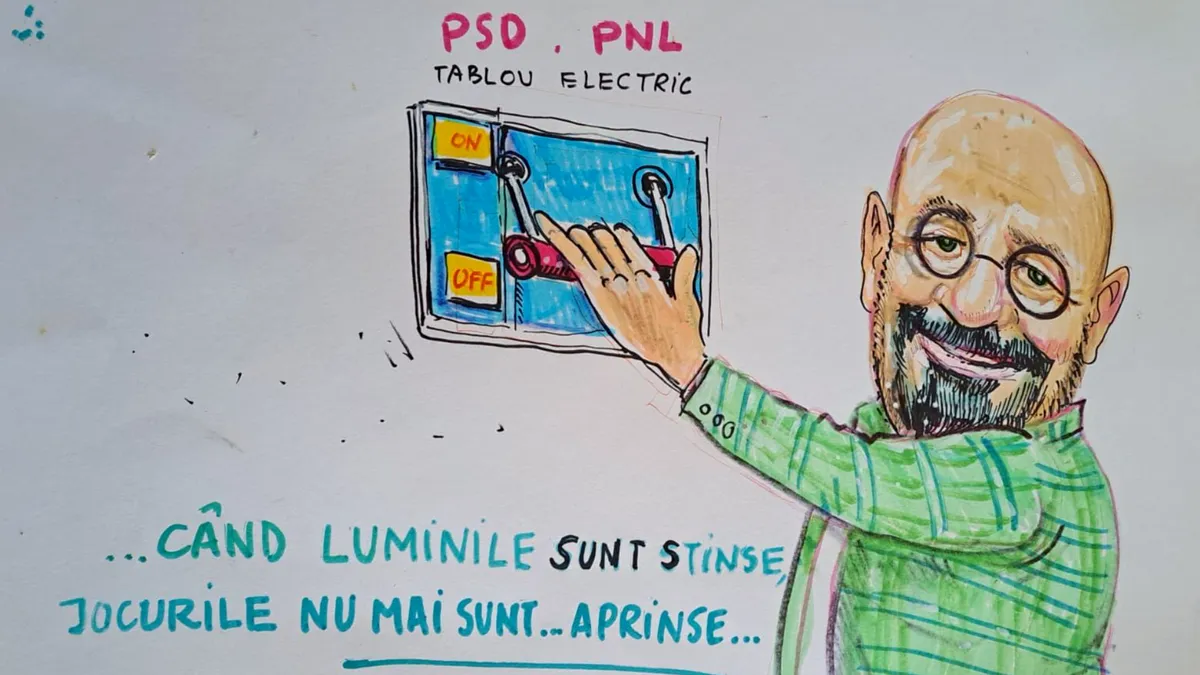 PSD . PNL
TABLOU ELECTRIC
ON
OFF
...CÂND LUMINILE SUNT STINSE,
JOCURILE NU MAI SUNT... APRINSE...